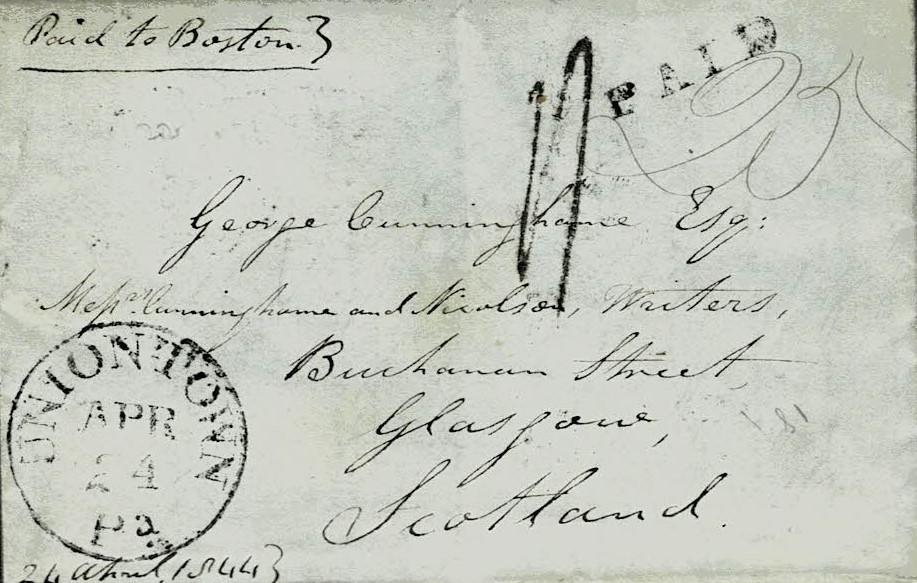 Paid to Boston }
PAID
25
George Cunninghame Esq:
Messrs. Cunninghame and Nicolson, Writers,
Buchanan Street,
Glasgow,
Scotland.
UNIONTOWN
APR
24
Pa
24 April, 1844 }